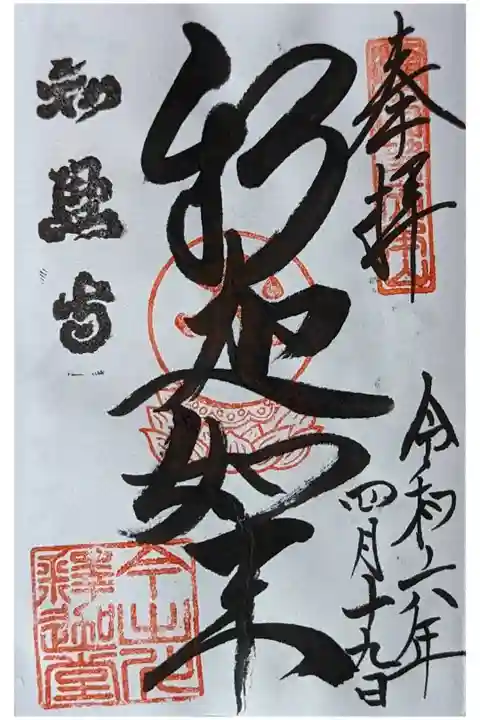 奉拝
令和六年
四月十九日
釈迦如来
知恩寺
今出川
釋迦堂